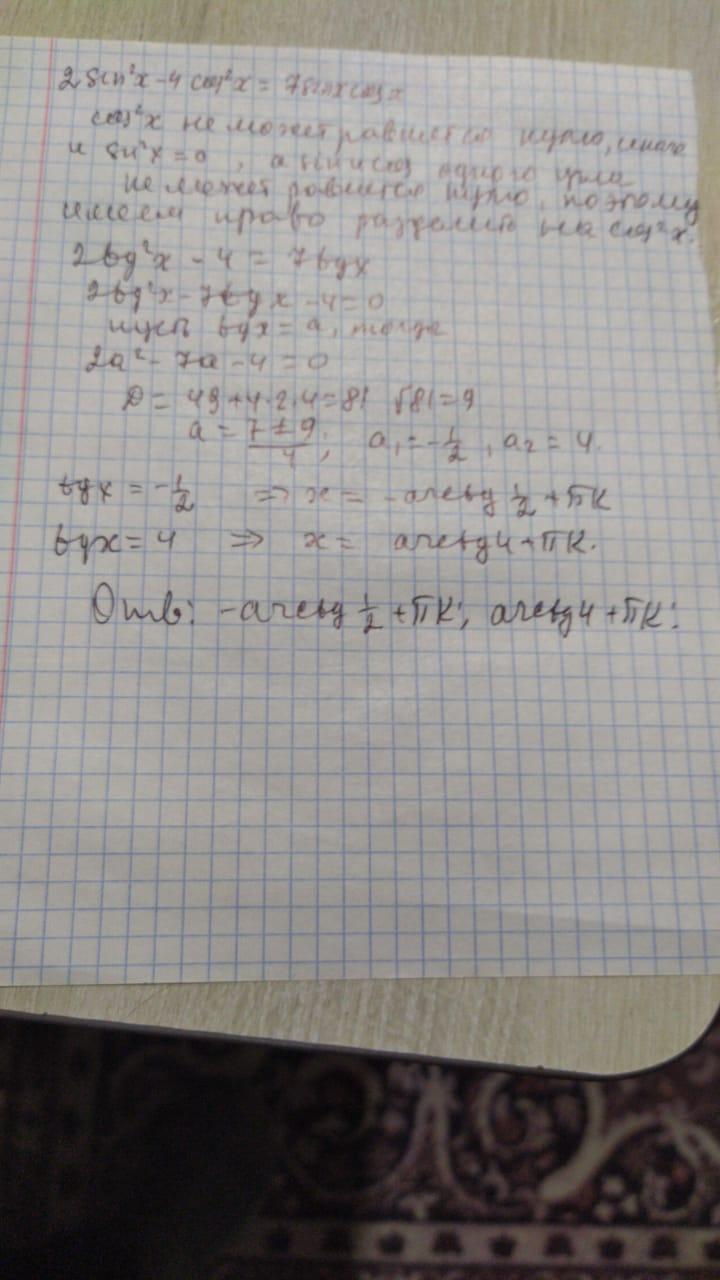 2 sin²x - 4 cos²x = 7 sinx cosx
cos²x не может равняется нулю, иначе
и sin²x = 0, а sin и cos одного угла
не может равняется нулю, поэтому
имеем право разделить на cos²x.
2tg²x - 4 = 7tgx
2tg²x - 7tgx - 4 = 0
пусть tgx = a, тогда
2a² - 7a - 4 = 0
D = 49 + 4·2·4 = 81 √81 = 9
a = (7 ± 9)/4; a₁ = -1/2, a₂ = 4.
tgx = -1/2 => x = -arctg 1/2 + πk
tgx = 4 => x = arctg4 + πk.
Отв: -arctg 1/2 + πk; arctg4 + πk.